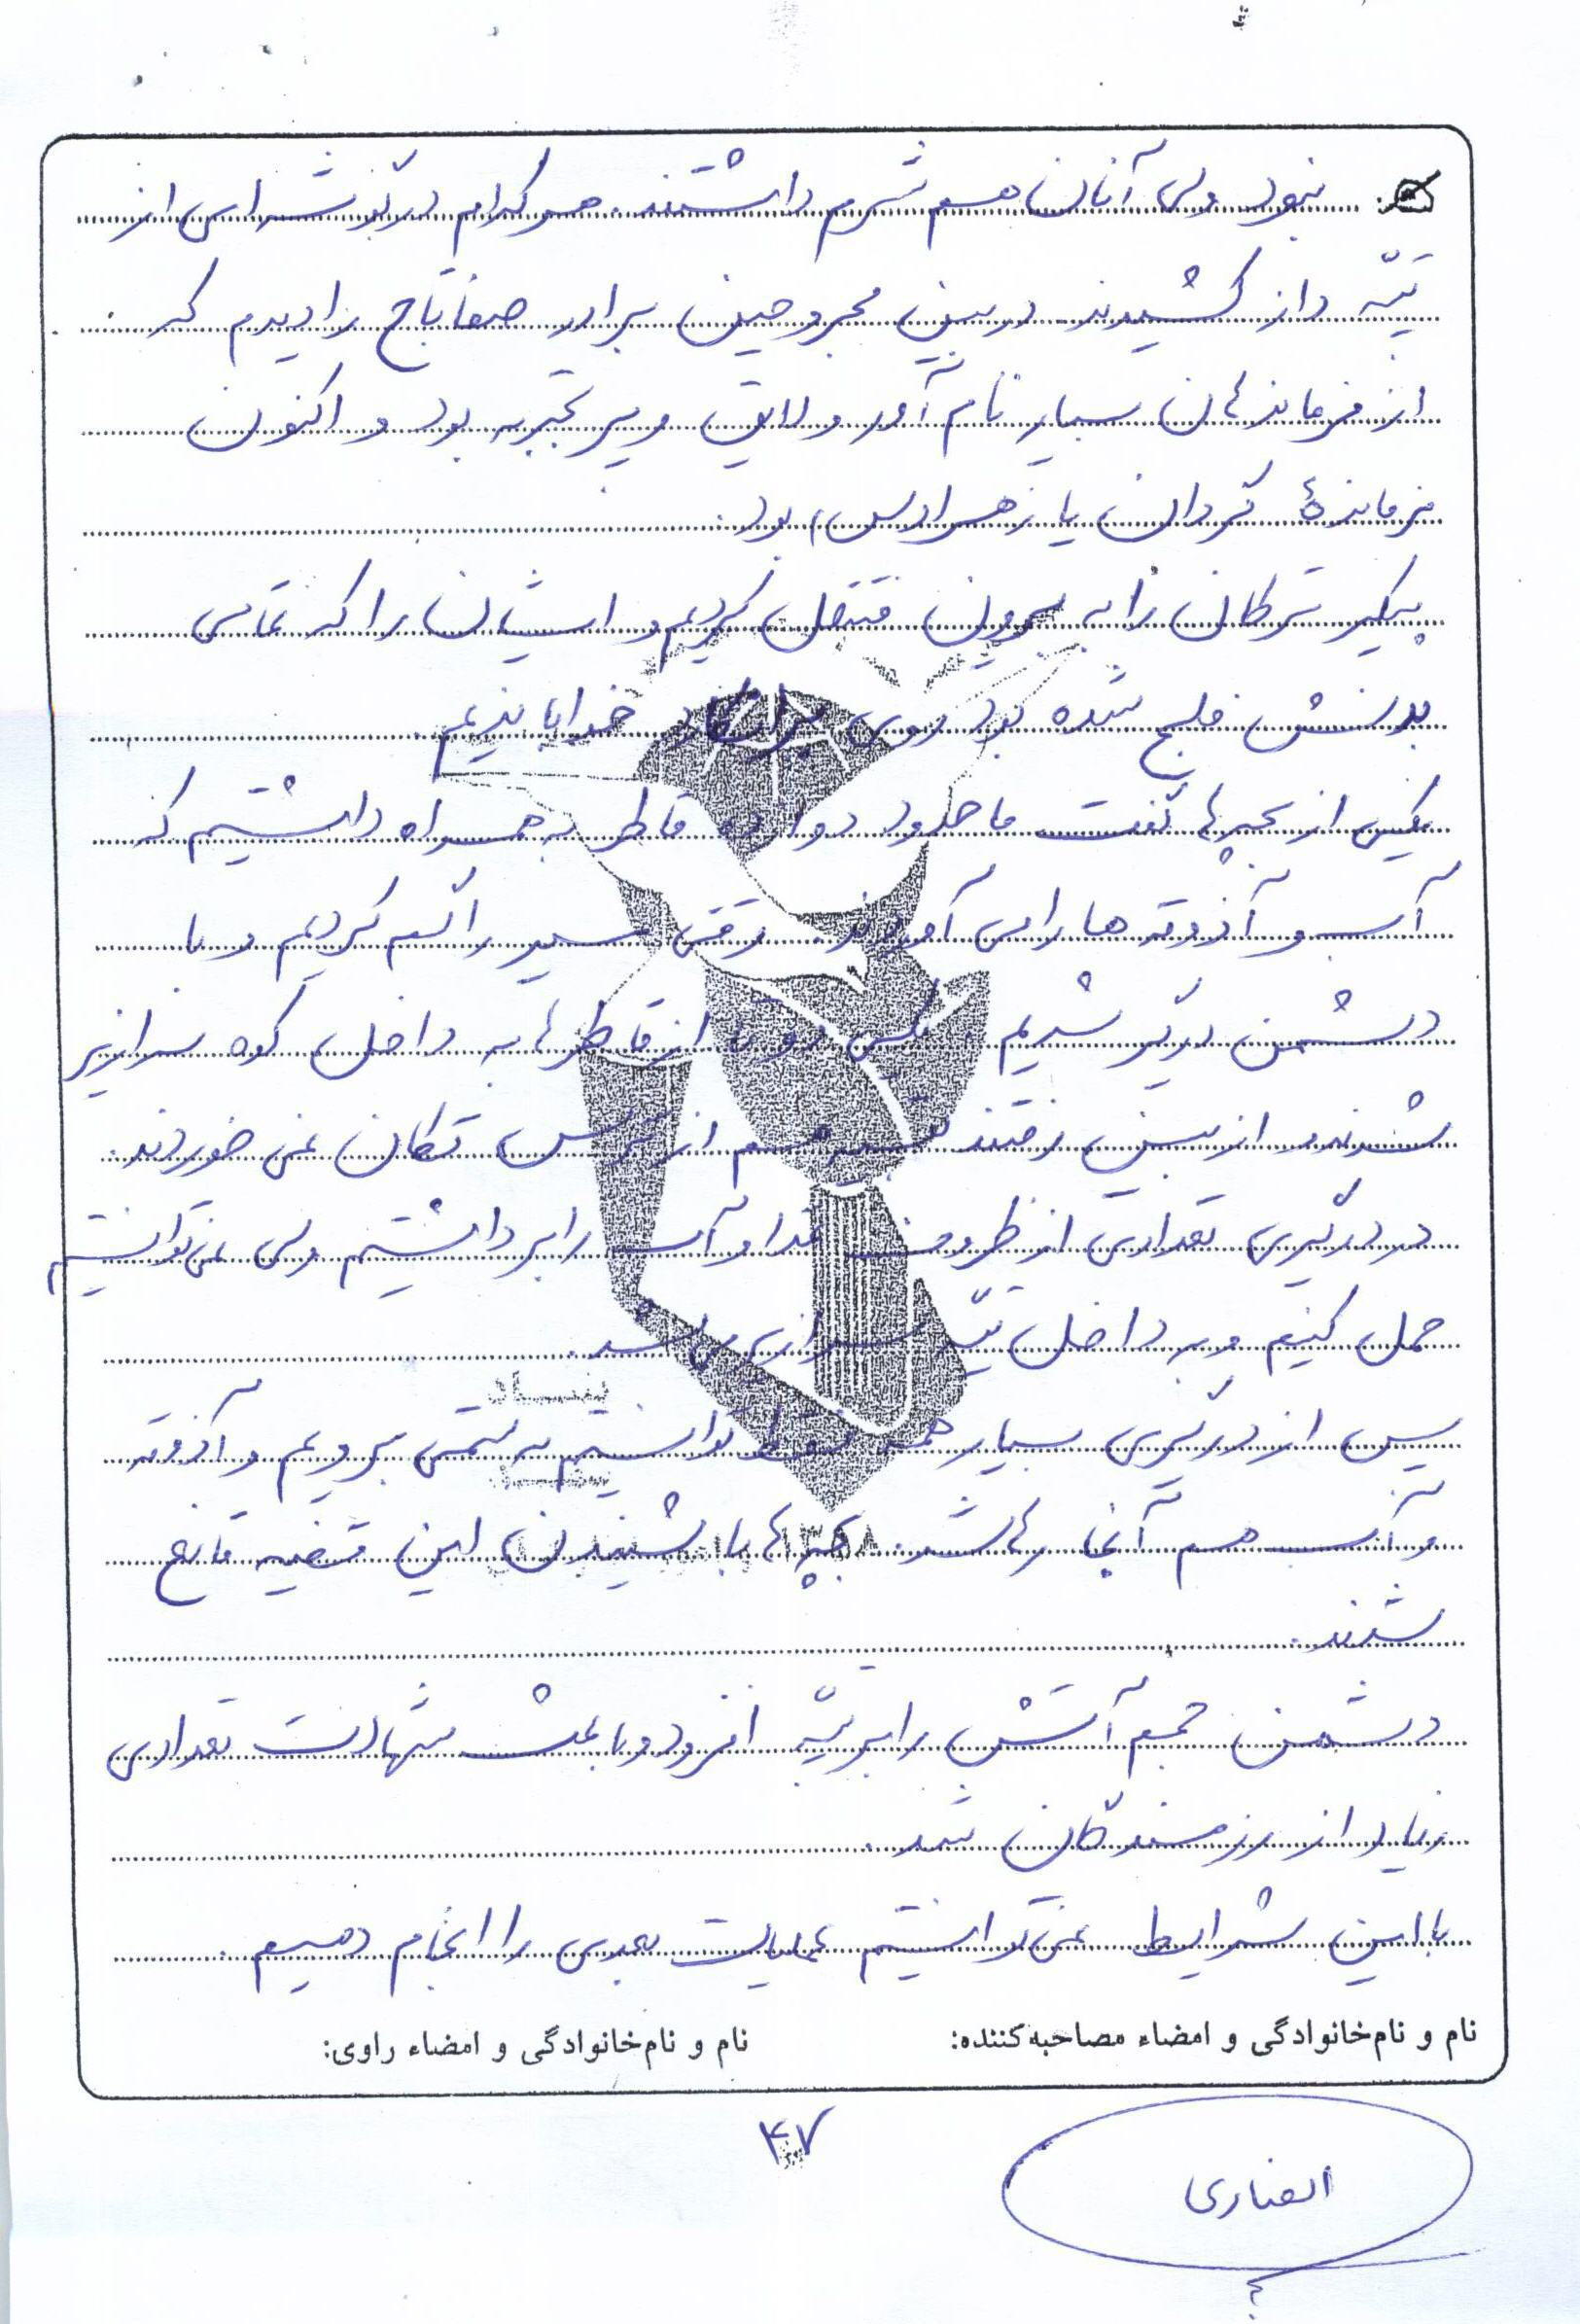 نبود ولی آنان هم شرم داشتند. هر کدام در گوشه‌ای از
تپّه دراز کشیدند در بین مجروحین برادر صفاتاج را دیدم که
از فرماندهان بسیار نام آور و لایق و پر تجربه بود و اکنون
فرماندهٔ گردان یا زهرا(س) بود.
پیکر ترکان را به بیرون منتقل کردیم و ایشان را که تمامی
بدنش فلج شده بود روی برانکارد خوابانیدیم.
یکی از بچه‌ها گفت ما حدود دوازده قاطر به همراه داشتیم که
آب و آذوقه ها را می آوردند. وقتی مسیر را گم کردیم و با
دشمن درگیر شدیم یکی دو تا از قاطرها به داخل کوه سرازیر
شدند و از بین رفتند بقیه هم از ترس تکان نمی خوردند.
در درگیری تعدادی از ظروف غذا و آب را برداشتیم ولی نمی توانستیم
حمل کنیم و به داخل تپّه سرازیر می شد.
پس از درگیری بسیار همه فقط توانستیم به سختی برویم و آذوقه
و آب هم آنجا رها شد. بچه‌ها با شنیدن این قضیه قانع
شدند.
دشمن حجم آتش را بر تپّه افزود و باعث شهادت تعدادی
زیاد از رزمندگان شد.
با این شرایط نمی توانستیم عملیات بعدی را انجام دهیم.
نام و نام‌خانوادگی و امضاء مصاحبه‌کننده:
نام و نام‌خانوادگی و امضاء راوی:
۴۷